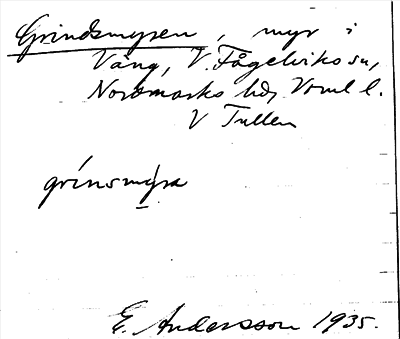 Grindsmyren, myr i
Väng, V. Fågelviks sn,
Nordmarks hd, Vrml l.
V Tullen
grinsmýra
E. Andersson 1935.